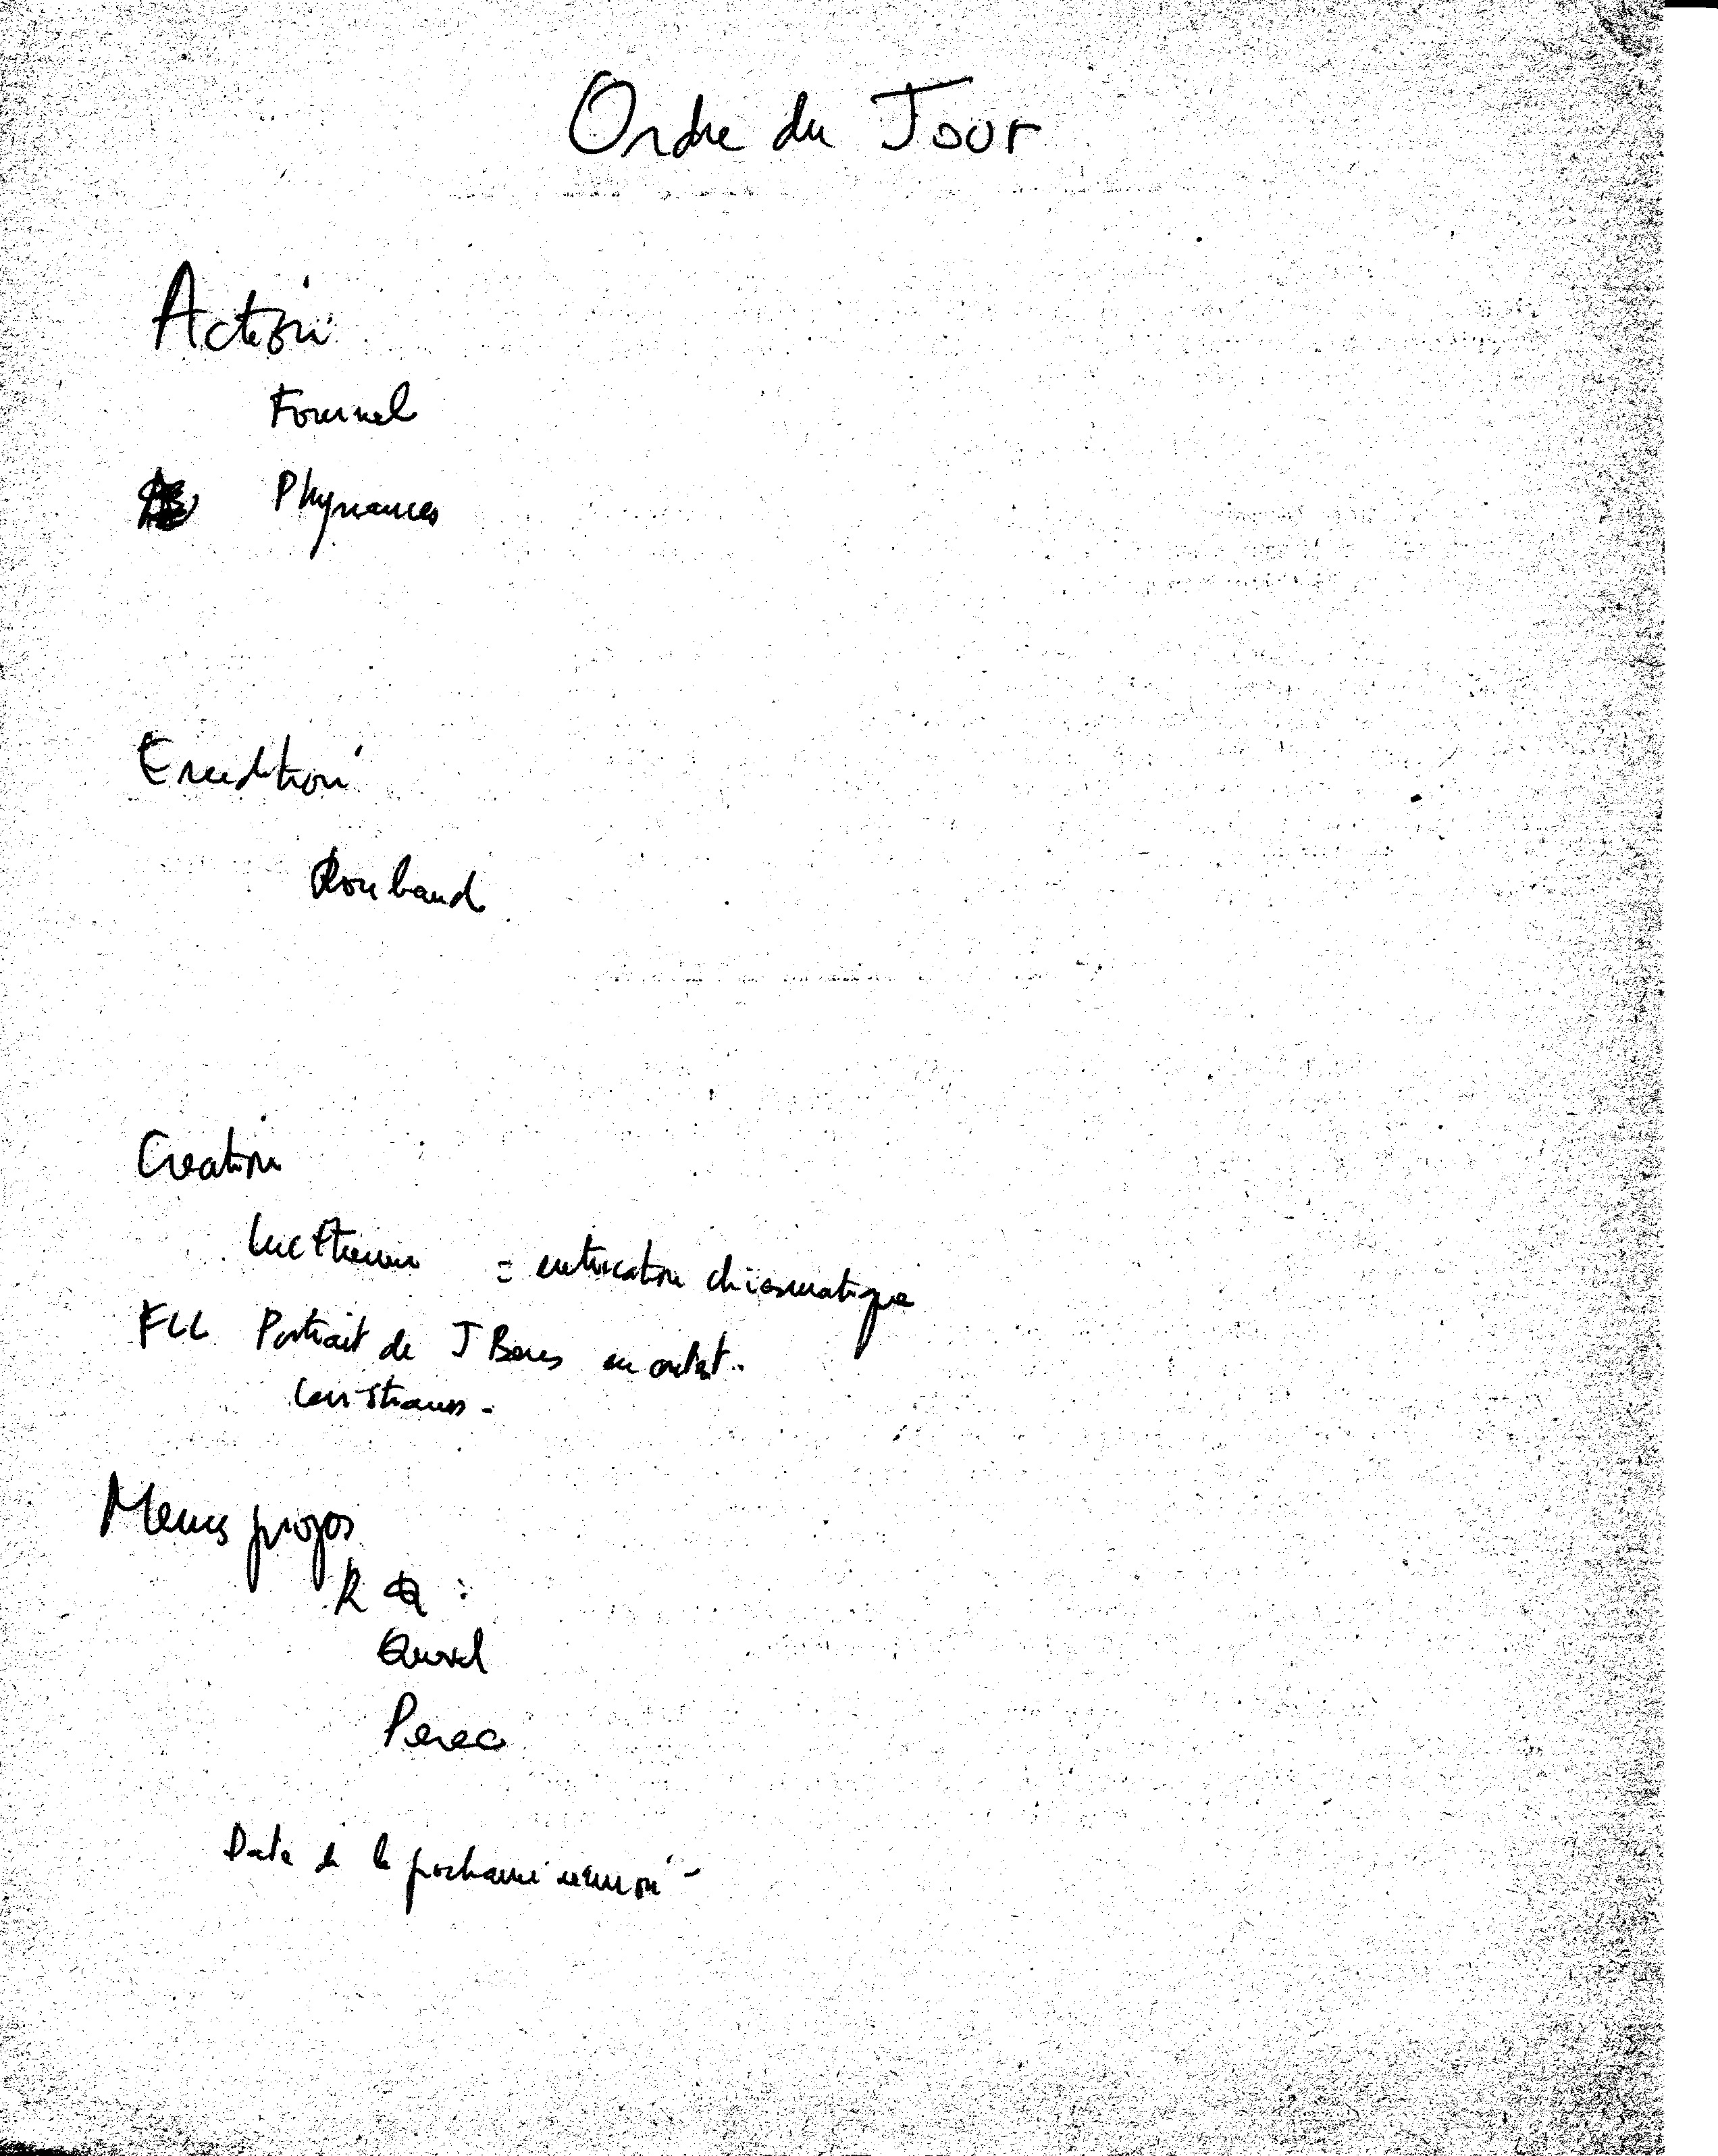 Ordre du Jour
Action
Fournel
Phynances
Erudition
Roubaud
Creation
Luc Etienne = intrication chiasmatique
FLL Portrait de J Bens en
Levi Strauss -
Menus propos
R Q :
Queval
Perec
Date de la prochaine réunion -